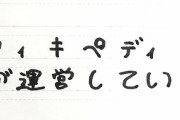 ィキペディ
が運営してい